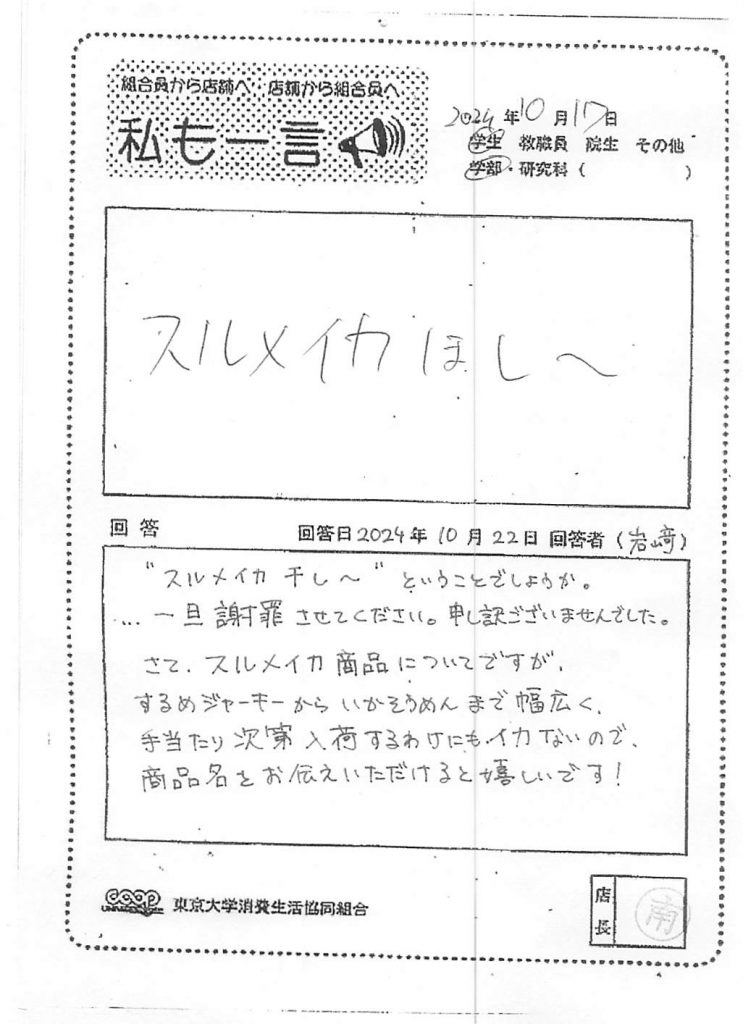 組合員から店舗へ 店舗から組合員へ
私も一言
2024年10月17日
学生 教職員 院生 その他
学部・研究科( )
スルメイカほし〜
回答 回答日2024年10月22日 回答者(岩崎)
"スルメイカ干し〜"ということでしょうか。
…一旦謝罪させてください。申し訳ございませんでした。
さて、スルメイカ商品についてですが、
するめジャーキーからいかそうめんまで幅広く、
手当たり次第入荷するわけにもイカないので、
商品名をお伝えいただけると嬉しいです!
coop 東京大学消費生活協同組合
店長
南